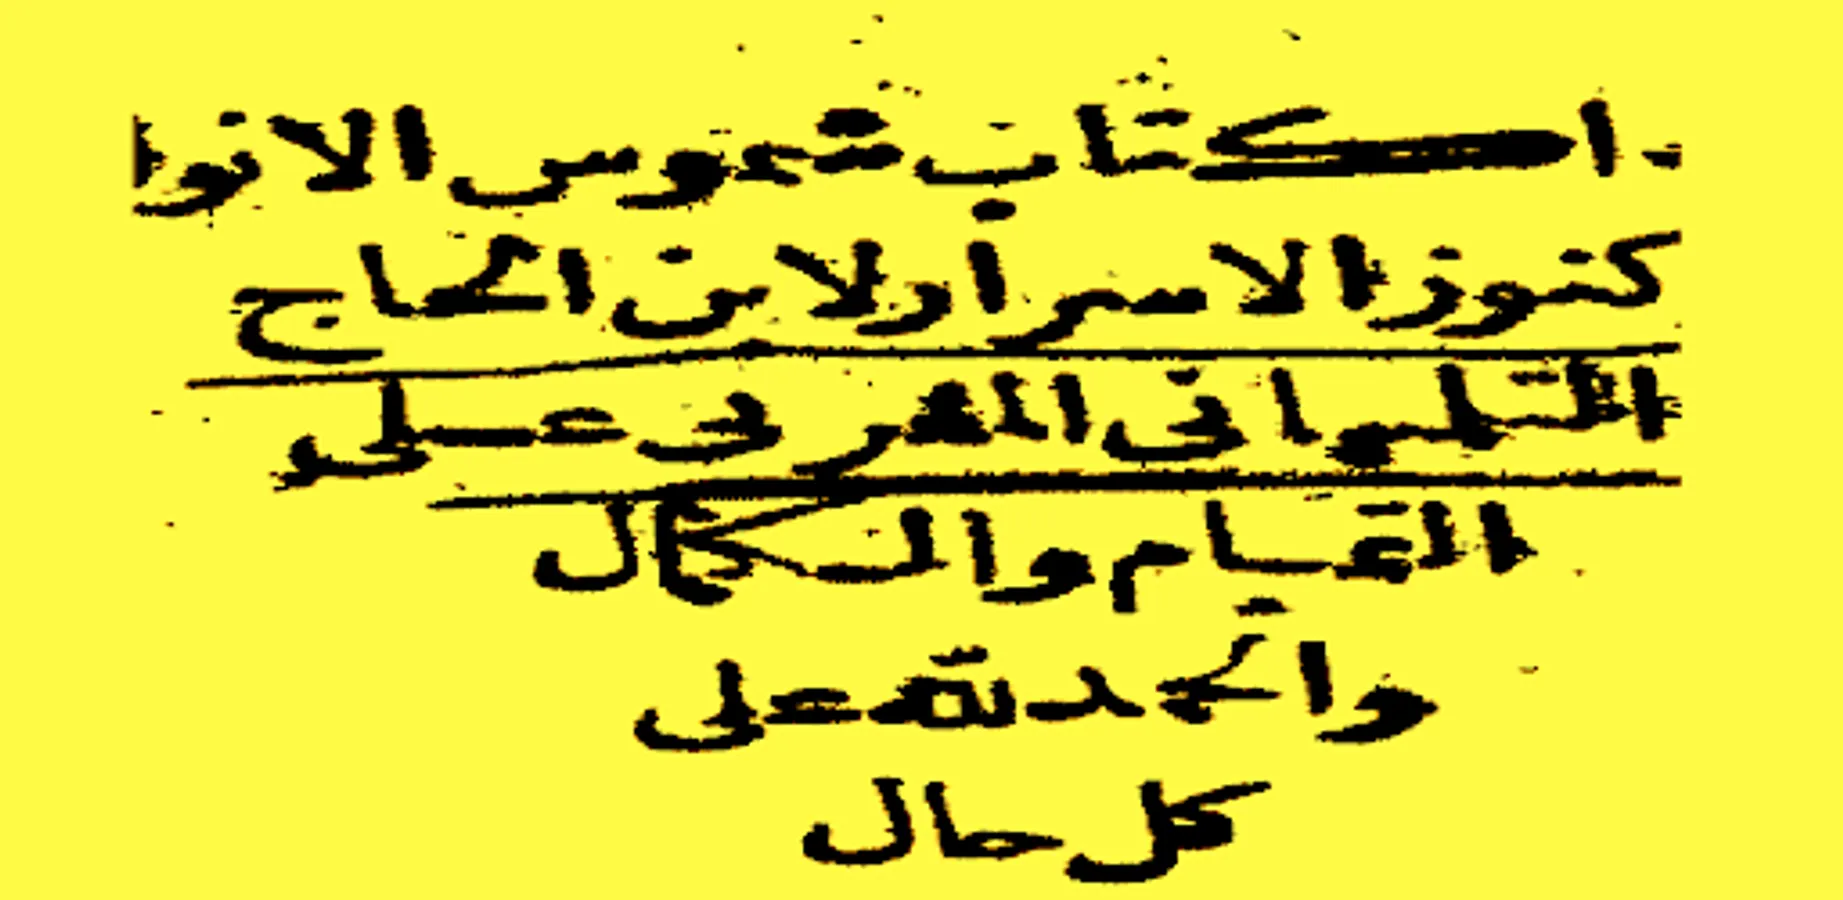 الكتاب شموس الانوا
كنوز الاسرار لابن الحاج
التلمسانى المغربى على
التمام والكمال
والحمد لله على
كل حال